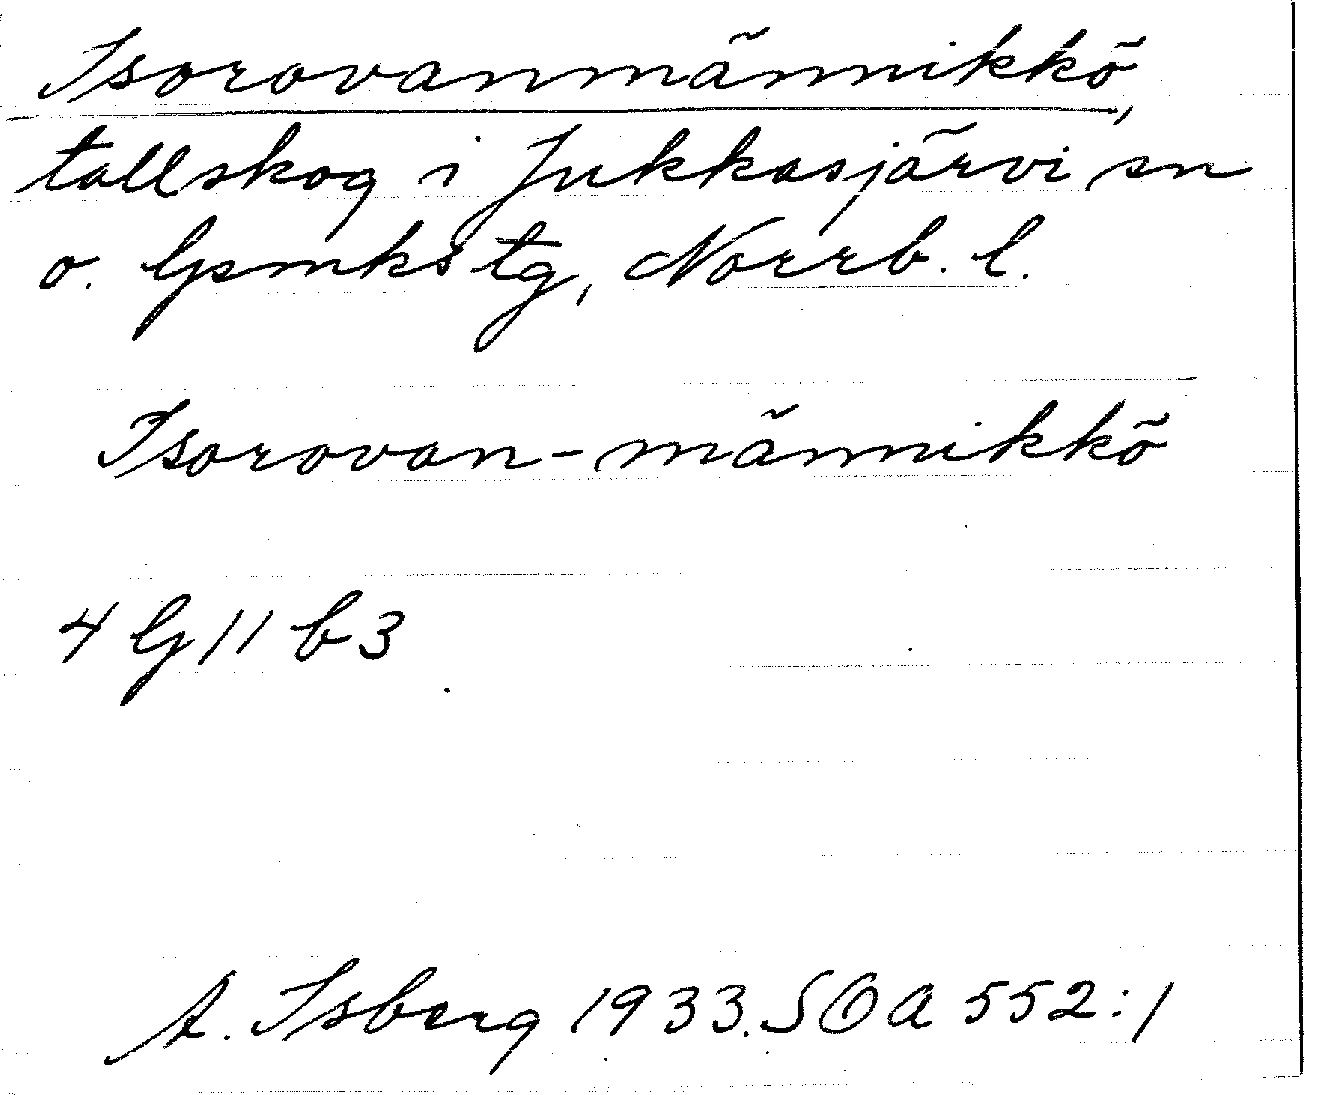 Isorovanmännikkö,
tallskog i Jukkasjärvi sn
o. Gsmks tg, Norrb. l.
Isorovan-männikkö
4 G 11 b 3
A. Isberg 1933. SOA 552:1